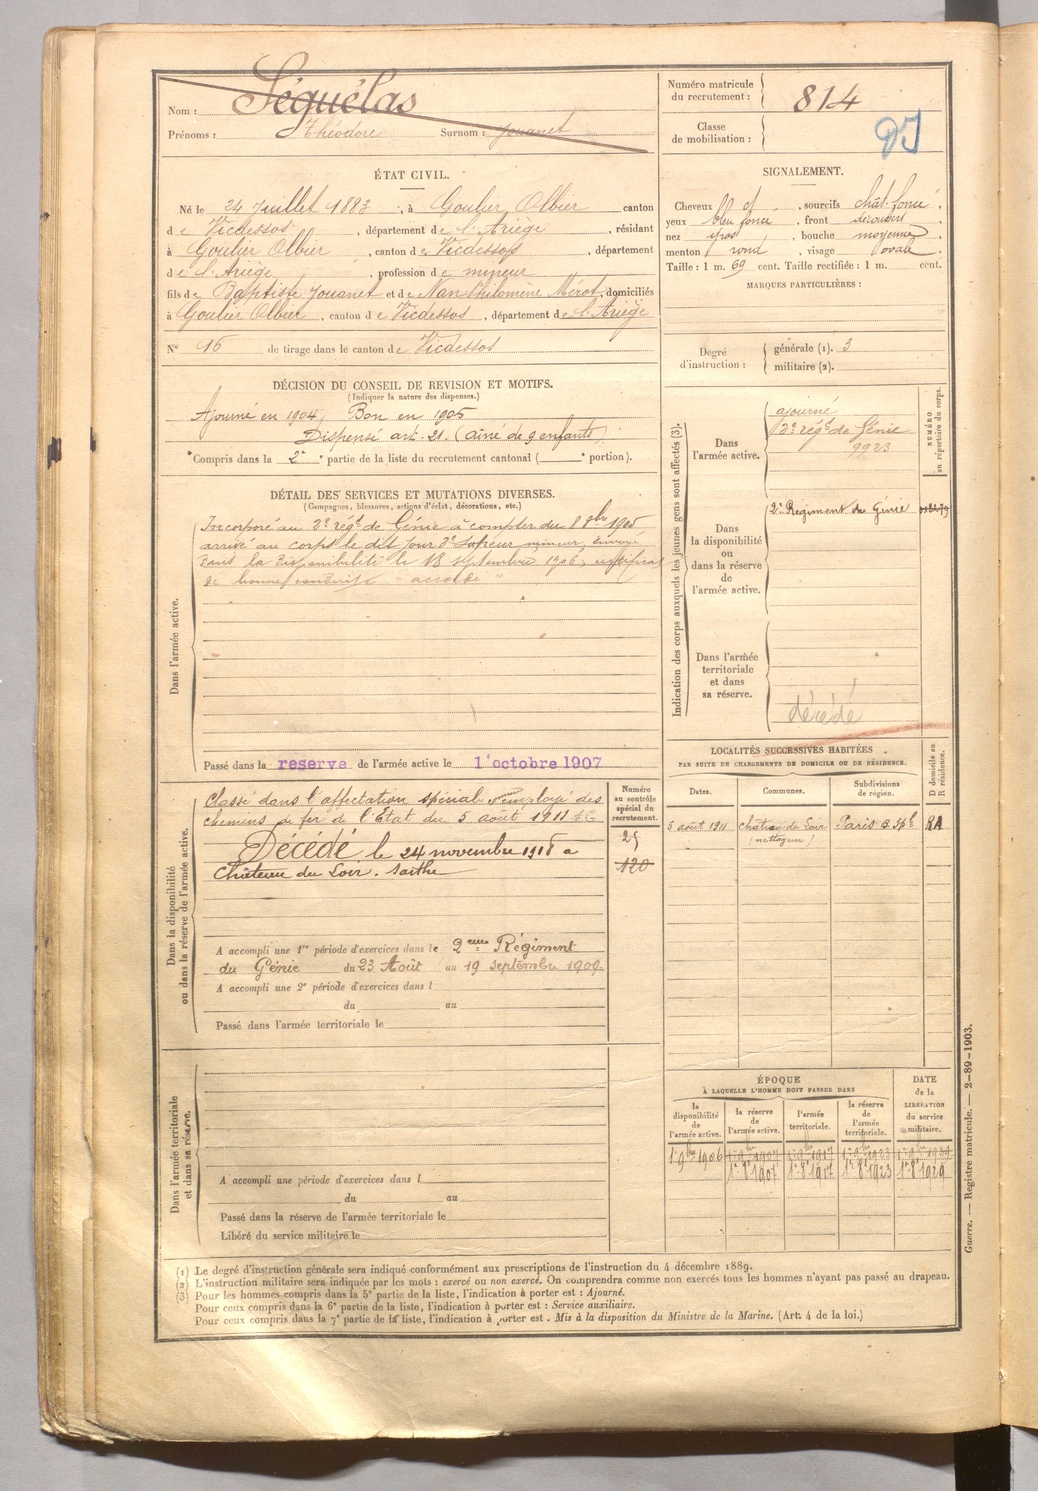 Nom : Séguélas
Prénoms : Théodore Surnom : Jouanet
Numéro matricule
du recrutement : 814
Classe
de mobilisation :
ÉTAT CIVIL.
Né le 24 Juillet 1883, à Goulier Olbier canton
de Vicdessos, département de l'Ariège, résidant
à Goulier Olbier, canton de Vicdessos, département
de l'Ariège, profession de mineur
fils de Baptiste Jouanet et de Nan Philomène Mérot, domiciliés
à Goulier Olbier, canton de Vicdessos, département de l'Ariège
N° 16 de tirage dans le canton de Vicdessos
SIGNALEMENT.
Cheveux et, sourcils chât. foncé,
yeux bleu foncé, front découvert,
nez gros, bouche moyenne,
menton rond, visage ovale.
Taille : 1 m. 69 cent. Taille rectifiée : 1 m. cent.
MARQUES PARTICULIÈRES :
Degré
d'instruction :
générale (1). 3
militaire (2).
DÉCISION DU CONSEIL DE REVISION ET MOTIFS.
(Indiquer la nature des dispenses.)
Ajourné en 1904, Bon en 1905
Dispensé art. 21. (aîné de 9 enfants)
Compris dans la 2e partie de la liste du recrutement cantonal ( e portion).
DÉTAIL DES SERVICES ET MUTATIONS DIVERSES.
(Campagnes, blessures, actions d'éclat, décorations, etc.)
Dans l'armée active.
Incorporé au 2e régt de Génie à compter du 8 8bre 1905
arrivé au corps le dit jour 2e sapeur mineur, Envoyé
dans la disponibilité le 18 septembre 1906, certificat
de bonne conduite "accordé"
Passé dans la réserve de l'armée active le 1 octobre 1907
Indication des corps auxquels les jeunes gens sont affectés (3).
NUMÉRO
au répertoire du corps.
Dans
l'armée active.
ajourné
2e régt de Génie
9923
Dans
la disponibilité
ou
dans la réserve
de
l'armée active.
2e Régiment du Génie
Dans l'armée
territoriale
et dans
sa réserve.
décédé
Dans la disponibilité
ou dans la réserve de l'armée active.
Numéro
au contrôle
spécial du
recrutement.
25
120
Classé dans l'affectation spécial comme employé des
chemins de fer de l'État du 5 août 1911
Décédé le 24 novembre 1918 a
Château du Loir. Sarthe
A accompli une 1re période d'exercices dans le 2eme Régiment
du Génie du 23 Août au 19 septembre 1909
A accompli une 2e période d'exercices dans l
du au
Passé dans l'armée territoriale le
LOCALITÉS SUCCESSIVES HABITÉES
PAR SUITE DE CHANGEMENTS DE DOMICILE OU DE RÉSIDENCE.
D domicile ou
R résidence.
Dates. Communes. Subdivisions
de région.
5 août 1911 Château du Loir Paris B. Spl RA
(nettoyeur)
Dans l'armée territoriale
et dans sa réserve.
A accompli une période d'exercices dans l
du au
Passé dans la réserve de l'armée territoriale le
Libéré du service militaire le
ÉPOQUE
À LAQUELLE L'HOMME DOIT PASSER DANS
DATE
de la
LIBÉRATION
du service
militaire.
la
disponibilité
de
l'armée active.
la réserve
de
l'armée active.
l'armée
territoriale.
la réserve
de
l'armée
territoriale.
1r 9bre 1906 1r 9bre 1907 1r 9bre 1917 1r 9bre 1923 1r 9bre 1929
1r 8 1907 1r 8 1917 1r 8 1923 1r 8 1929
(1) Le degré d'instruction générale sera indiqué conformément aux prescriptions de l'instruction du 4 décembre 1889.
(2) L'instruction militaire sera indiquée par les mots : exercé ou non exercé. On comprendra comme non exercés tous les hommes n'ayant pas passé au drapeau.
(3) Pour les hommes compris dans la 5e partie de la liste, l'indication à porter est : Ajourné.
Pour ceux compris dans la 6e partie de la liste, l'indication à porter est : Service auxiliaire.
Pour ceux compris dans la 7e partie de la liste, l'indication à porter est : Mis à la disposition du Ministre de la Marine. (Art. 4 de la loi.)
Guerre. — Registre matricule. — 2-89-1903.